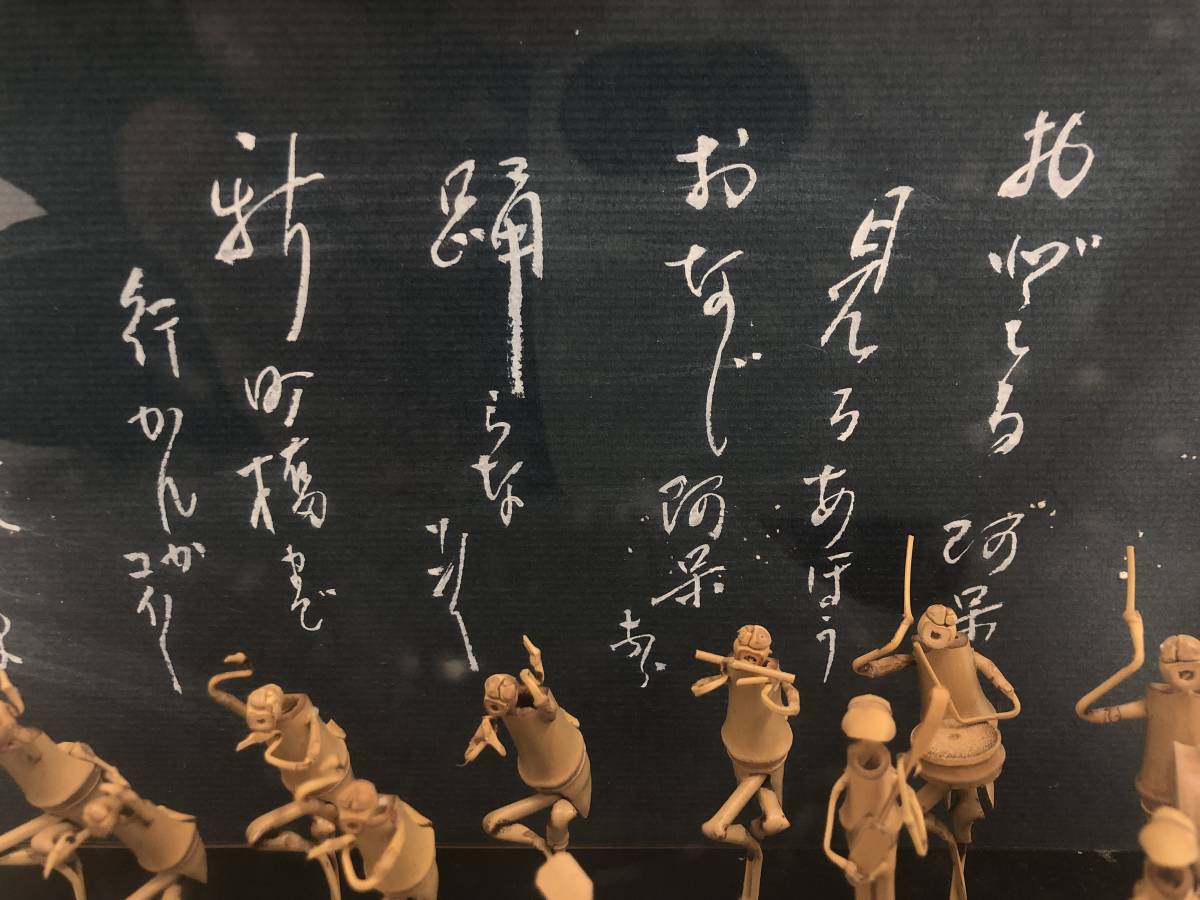 おどる阿呆
見るあほう
おなじ阿呆なら
踊らなソン〱
新町橋まで
行かんかコイ〱